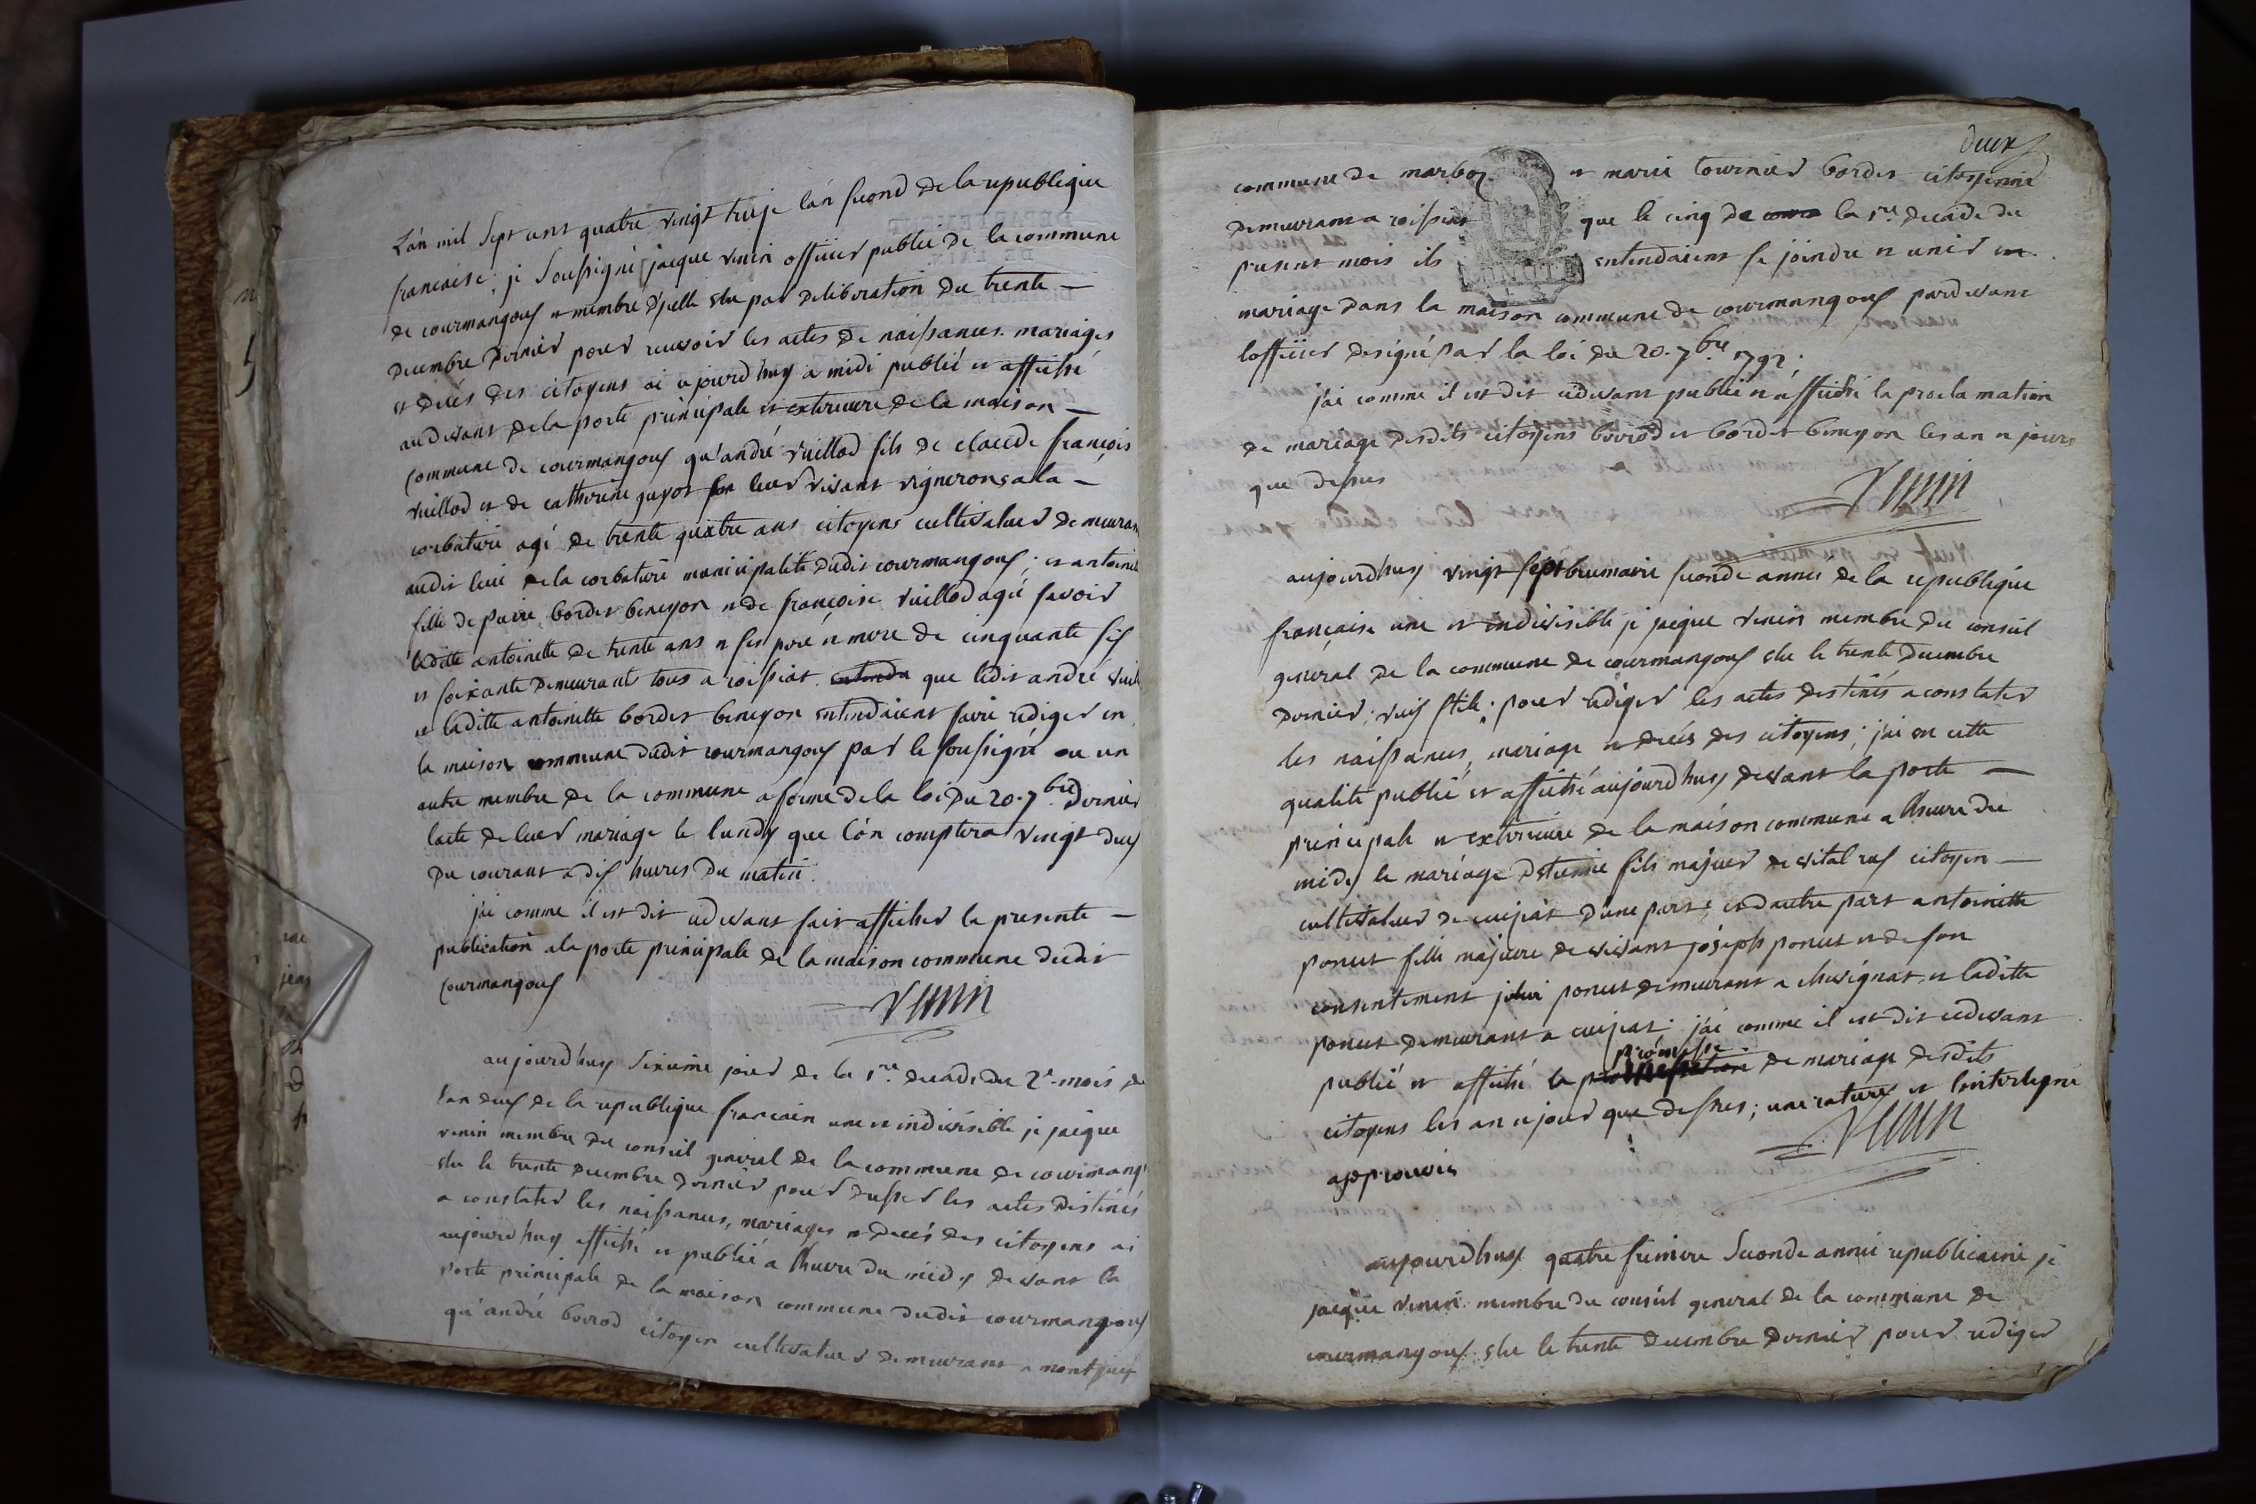 L'an mil sept cent quatre vingt treize l'an second de la republique
francaise; je soussigné jacque venin officier public de la commune
de courmangoux et membre d'jcelle elu par deliberation du trente —
decembre dernier pour recevoir les actes de naissances mariages
et décés des citoyens ai ajourd'huy a midi publié et affiché
audevant de la porte principale et exterieure de la maison —
commune de courmangoux qu'andré vuillod fils de claude françois
vuillod et de catherine guyot leur vivant vignerons a la —
corbature agé de trente quatre ans citoyens cultivateur demeurant
audit lieu de la corbature municipalité dudit courmangoux; et antoinette
fille de pierre bordet beneyon et de francoise vuillod agé savoir
ladite antoinette de trente ans et ses peré et mere de cinquante six
et soixante demeurants tous a roissiat entendu que ledit andré vuillod
et laditte antoinette bordet beneyon entendaient faire rediger en
la maison commune dudit courmangoux par le soussigné ou un
autre membre de la commune a forme de la loi du 20. 7bre dernier
lacte de leur mariage le lundy que l'on comptera vingt deux
du courant a dix heures du matin.
j'ai comme il est dit cidevant fait afficher la presente —
publication a la porte principale de la maison commune dudit
courmangoux
Venin
aujourdhuy sixieme jour de la 1re decade du 2e mois de
lan deux de la republique francain une et indivisible je jacque
venin membre du conseil general de la commune de courmang
elu le trente decembre dernier pour dresser les actes déstinés
a constater les naissances, mariages et decés des citoyens ai
aujourdhuy affiché et publié a lheure du midy devant la
porte principale de la maison commune dudit courmangoux
qu'andré bovrod citoyen cultivateur demeurant a montjuif
deux
commune de marboz et marie tournier bordet citoyenne
demeurant a roissiat que le cinq de la 1re decade du
present mois ils entendaient se joindre et unir en
mariage dans la maison commune de courmangoux pardevant
lofficier designé par la loi du 20. 7bre 1792.
j'ai comme il est dit cidevant publié et affiché la proclamation
de mariage desdits citoyens bovrod et bordet beneyon les an et jours
que dessus
Venin
aujourdhuy vingt sept brumaire seconde anneé de la republique
francaise une et indivisible je jacque venin membre du conseil
general de la commune de courmangoux elu le trente decembre
dernier, vieux stile; pour rediger les actes destinés a constater
les naissances, mariage et decés des citoyens; j'ai en cette
qualité publié et affiché aujourdhuy devant la porte —
principale et exterieure de la maison commune a lheure du
midy le mariage d'etienne fils majeur de vital rux citoyen —
cultivateur de cuisiat d'une part; et dautre part antoinette
poncet fille majeure de vivant joseph poncet et de son
consentement jcelui poncet demeurant a chevignat, et laditte
poncet demeurant a cuisiat. j'ai comme il est dit cidevant
promesse
publié et affiché la de mariage desdits
citoyens les an et jour que dessus; une rature et linterligne
approuvés
Venin
aujourdhuy quatre frimere seconde année republicaine je
jacque venin membre du conseil general de la commune de
courmangoux elu le trente decembre dernier pour rediger